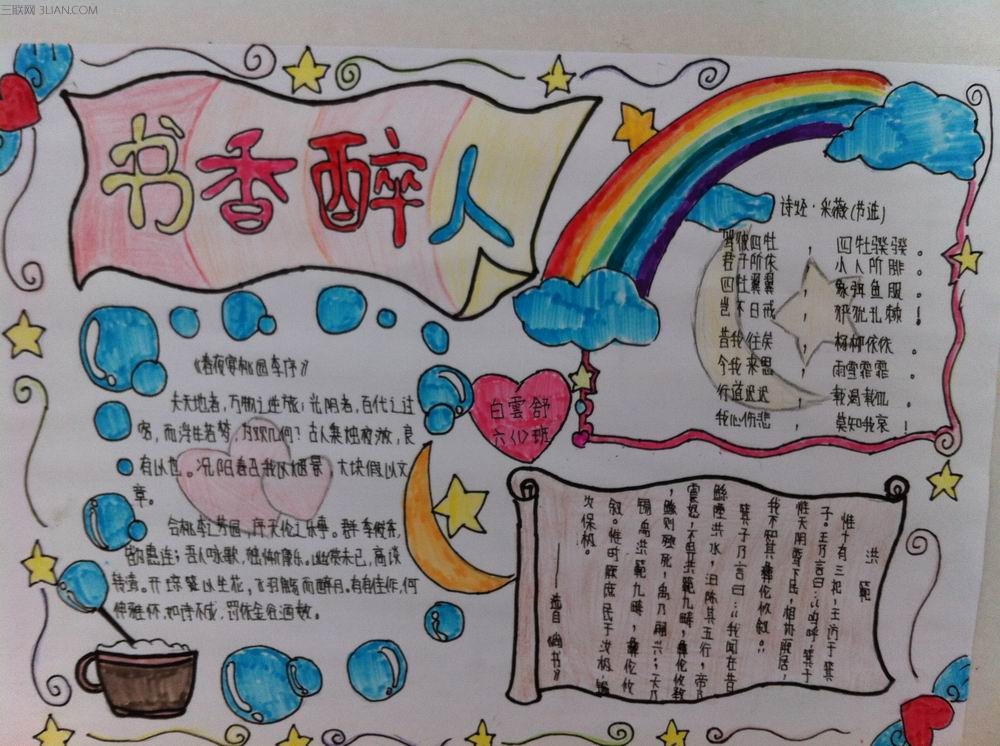 三联网 3LIAN.COM
书香醉人
《春夜宴桃园李序》
夫天地者，万物之逆旅；光阴者，百代之过
客，而浮生若梦，为欢几何？古人秉烛夜游，良
有以也。况阳春召我以烟景，大块假以文
章。
会桃李芳园，序天伦之乐事。群季俊秀，
皆惠连；吾人咏歌，惭康乐。幽赏未已，高谈
转清。开琼筵以坐花，飞羽觞而醉月。有佳作，何
伸雅怀，如诗不成，罚依金谷酒数。
白雲舒
六(1)班
诗经·采薇(节选)
驾彼四牡 ， 四牡骙骙 。
君子所依 ， 小人所腓 。
四牡翼翼 ， 象弭鱼服 。
岂不日戒 ， 玁狁孔棘 ！
昔我往矣 ， 杨柳依依 。
今我来思 ， 雨雪霏霏 。
行道迟迟 ， 载渴载饥 。
我心伤悲 ， 莫知我哀 ！
洪範
惟十有三祀，王访于箕
子。王乃言曰：“呜呼，箕子
惟天阴骘下民，相协厥居，
我不知其彝伦攸叙。”
箕子乃言曰：“我闻在昔
鲧堙洪水，汩陈其五行，帝乃
震怒，不畀洪範九畴，彝伦攸斁
，鲧则殛死，禹乃嗣兴。天乃
锡禹洪範九畴，彝伦攸
叙。惟时厥庶民于汝极，锡
汝保极。
——选自《尚书》